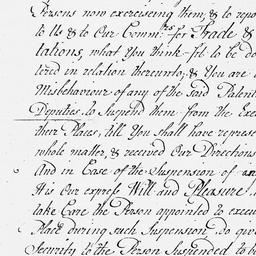 Persons now exerciseing them; & to repo
to Us & to Our Comm.rs for Trade &
lations, what You think fit to be do
tered in relation thereunto; & You are
Misbehaviour of any of the said Patent
Deputies to Suspend them from the Exe
their Places, till You shall have repres
whole matter, & received Our Directions
And in Case of the Suspension of an
It is Our express Will and Pleasure
take Care the Person appointed to execu
Place during such Suspension do give
Security to the Person Suspended to be